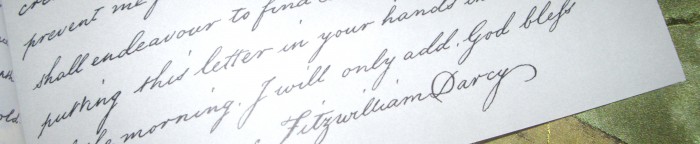 prevent me
shall endeavour to find
putting this letter in your hands in
morning. I will only add. God bleſs
Fitzwilliam Darcy
old